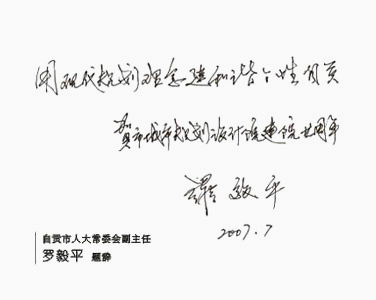 用现代规划理念建和谐个性自贡
贺市城市规划设计院建院廿周年
羅毅平
2007.7
自贡市人大常委会副主任
罗毅平 题辞